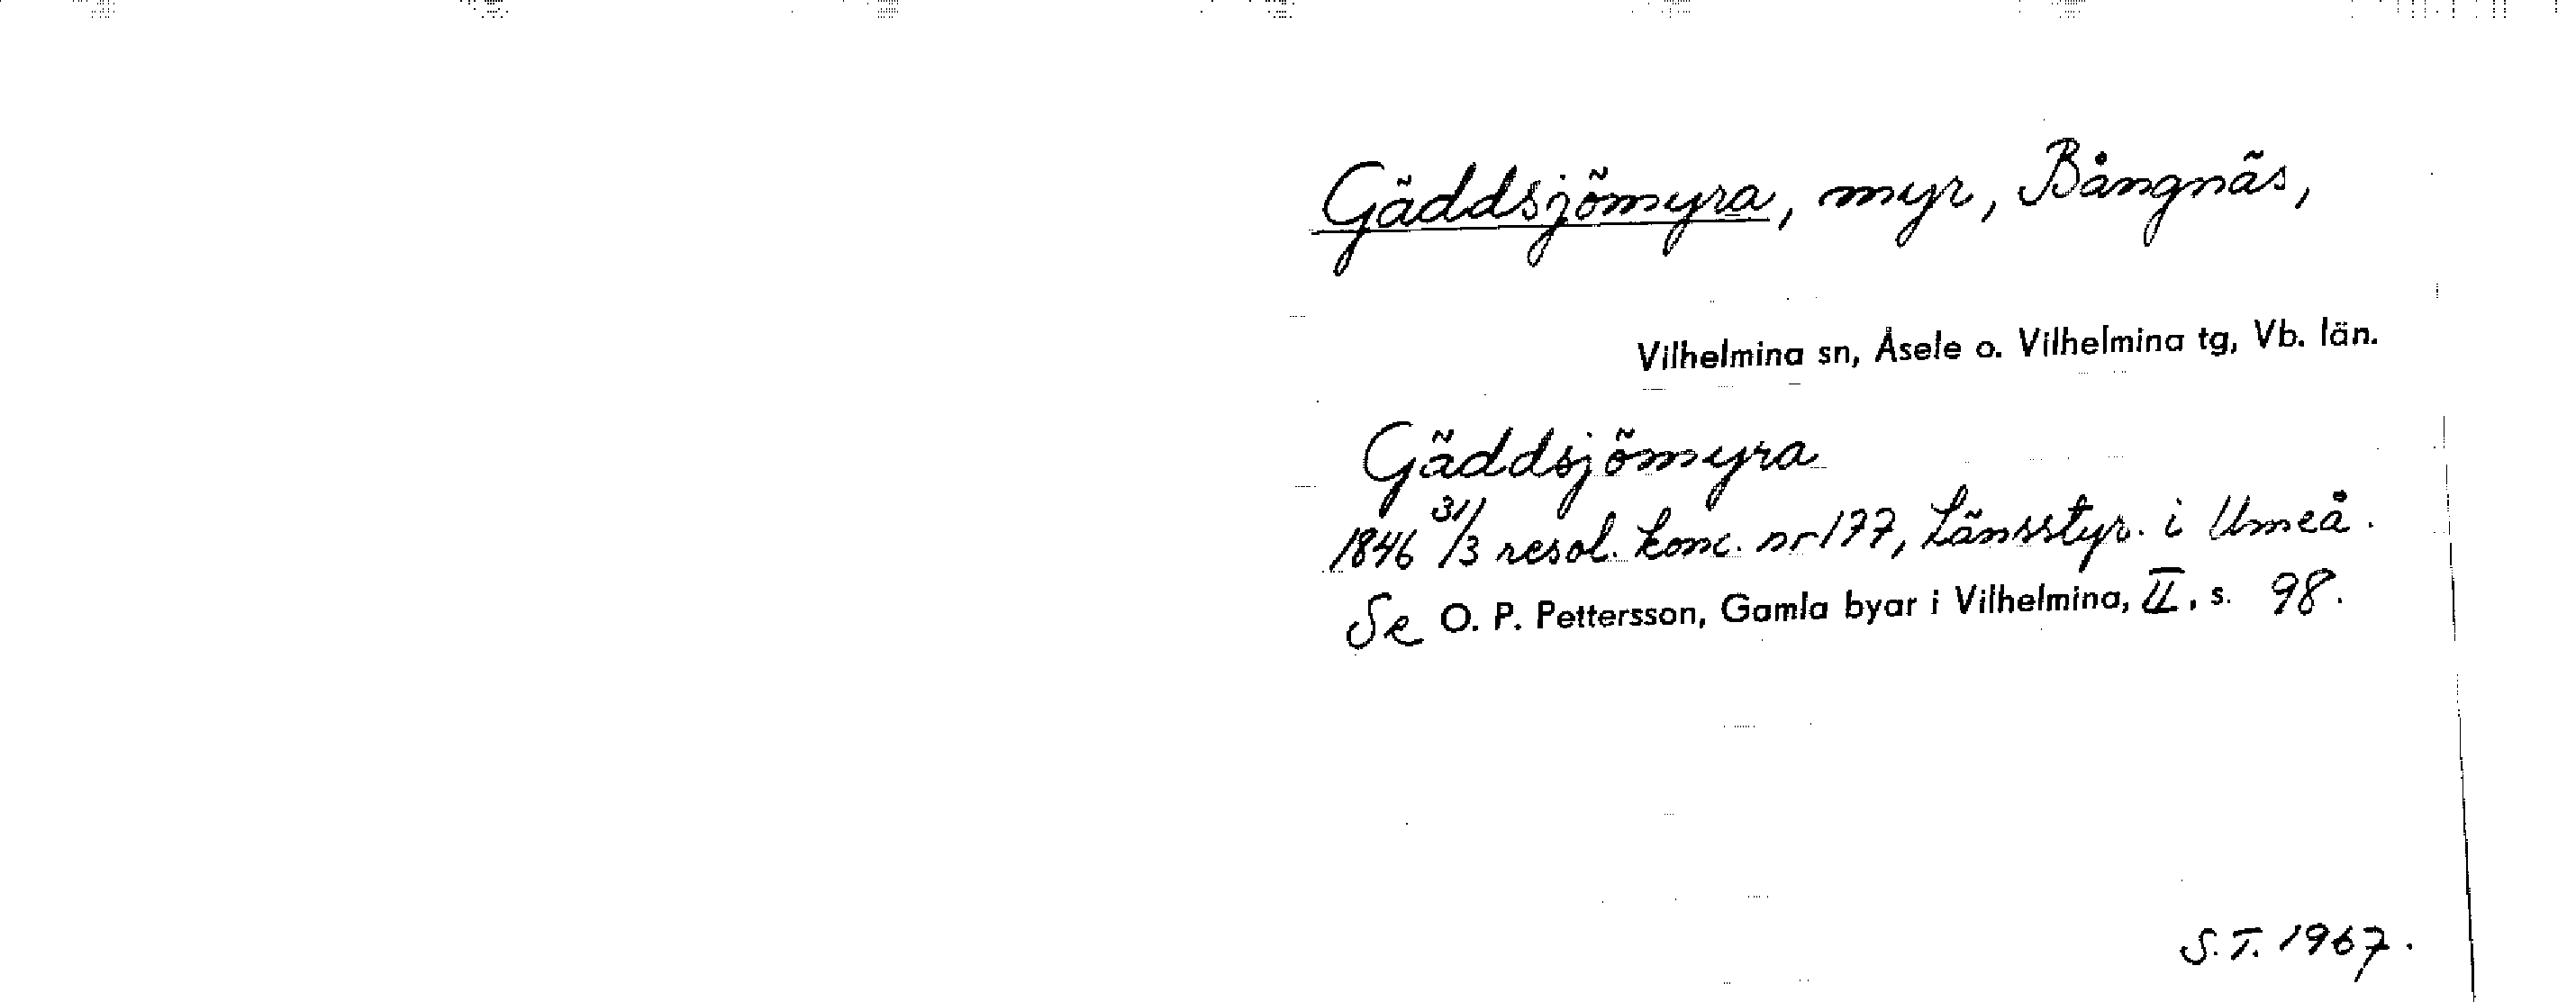 Gäddsjömyra, myr, Bångnäs,
Vilhelmina sn, Åsele o. Vilhelmina tg, Vb. län.
Gäddsjömyra
1846 31/3 resol. konc. nr 177, Länsstyr. i Umeå.
Se O. P. Pettersson, Gamla byar i Vilhelmina, II, s. 98.
S.T. 1967.